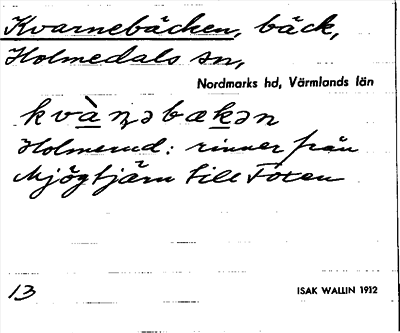 Kvarnebäcken, bäck,
Holmedals sn,
Nordmarks hd, Värmlands län
kvàṇəbækən
Holmerud: rinner från
Mjögtjärn till Foxen
13
ISAK WALLIN 1912